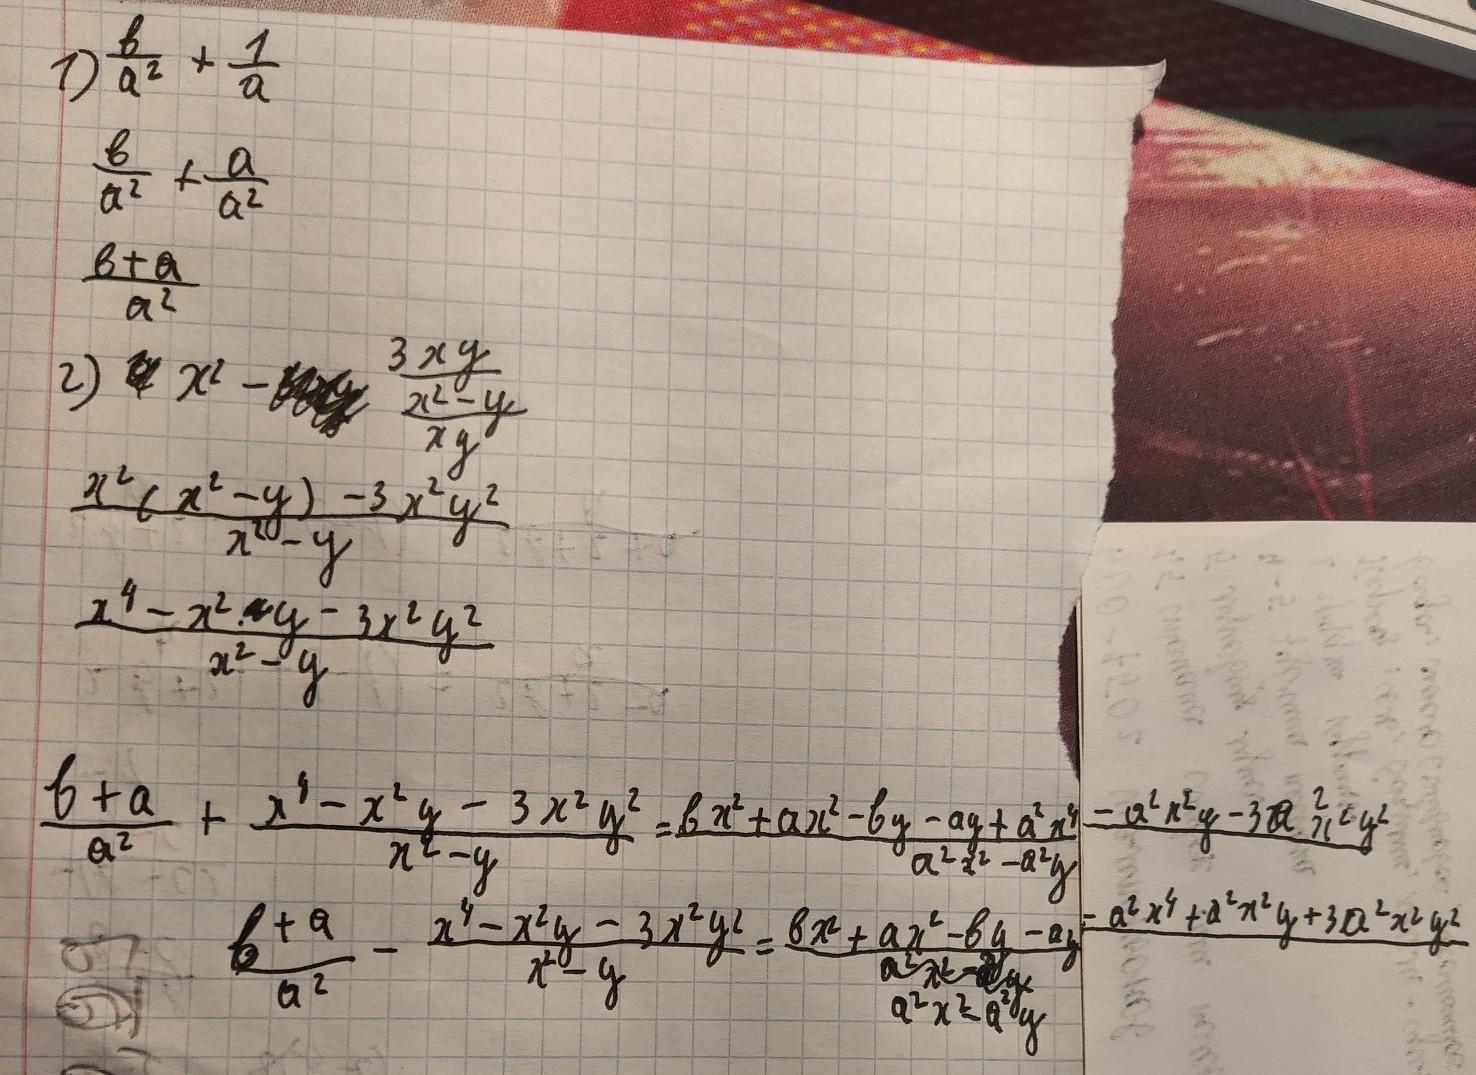 1) в/a² + 1/a
в/a² + a/a²
в+a/a²
2) x² - 3xy/((x²-y)/xy)
(x²(x²-y) -3x²y²)/(x²-y)
(x⁴ - x²·y - 3x²y²)/(x²-y)
(в+a)/a² + (x⁴ - x²y - 3x²y²)/(x²-y) = (вx²+ax²-вy-ay+a²x⁴-a²x²y-3a²x²y²)/(a²x²-a²y)
(в+a)/a² - (x⁴-x²y-3x²y²)/(x²-y) = (вx²+ax²-вy-ay-a²x⁴+a²x²y+3a²x²y²)/(a²x²-a²y)